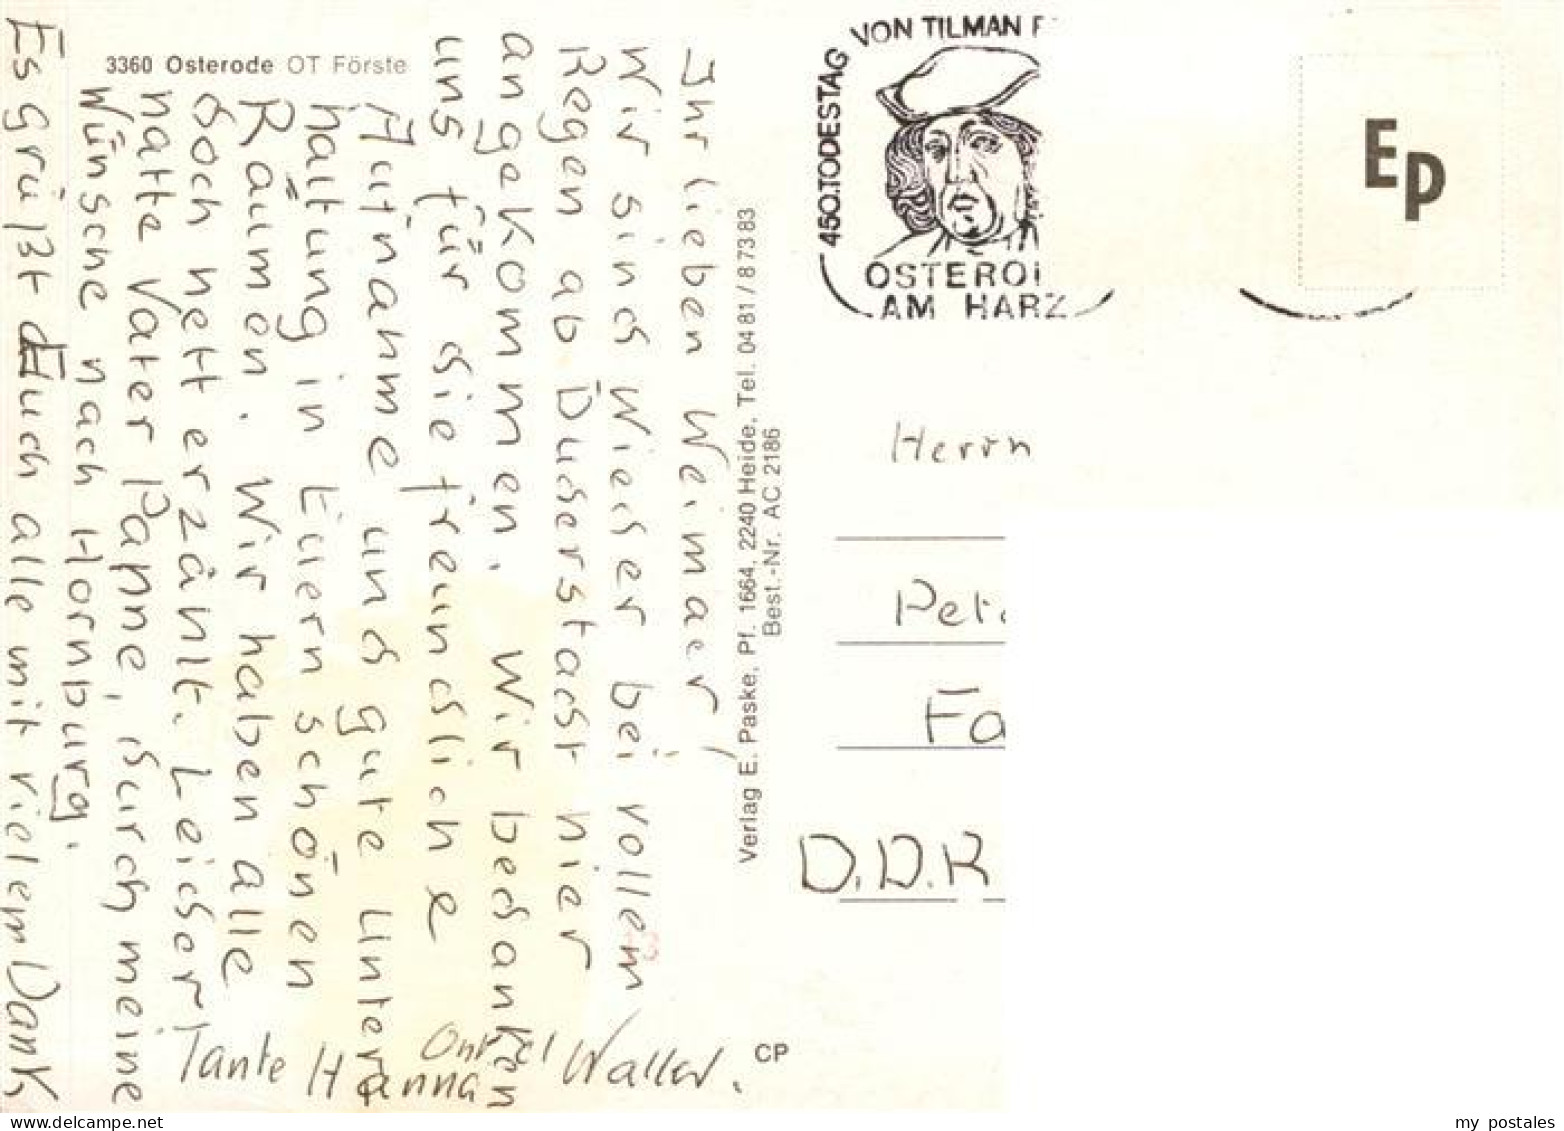 3360 Osterode OT Förste
Ihr lieben Weimaer!
Wir sind wieder bei vollem
Regen ab Duderstadt hier
angekommen. Wir bedanken
uns für die freundliche
Aufnahme und gute Unter
haltung in Euern schönen
Räumen. Wir haben alle
doch nett erzählt. Leider
hatte Vater Panne, durch meine
Wünsche nach Hornburg.
Es grüßt Euch alle mit vielem Dank
Tante Hanna Onkel Walter.
Verlag E. Paske, Pf. 1664, 2240 Heide, Tel. 04 81 / 8 73 83
Best.-Nr. AC 2186
CP
450.TODESTAG VON TILMAN
OSTERO
AM HARZ
EP
Herrn
Pet
Fa
D.D.R
www.delcampe.net
my_postales